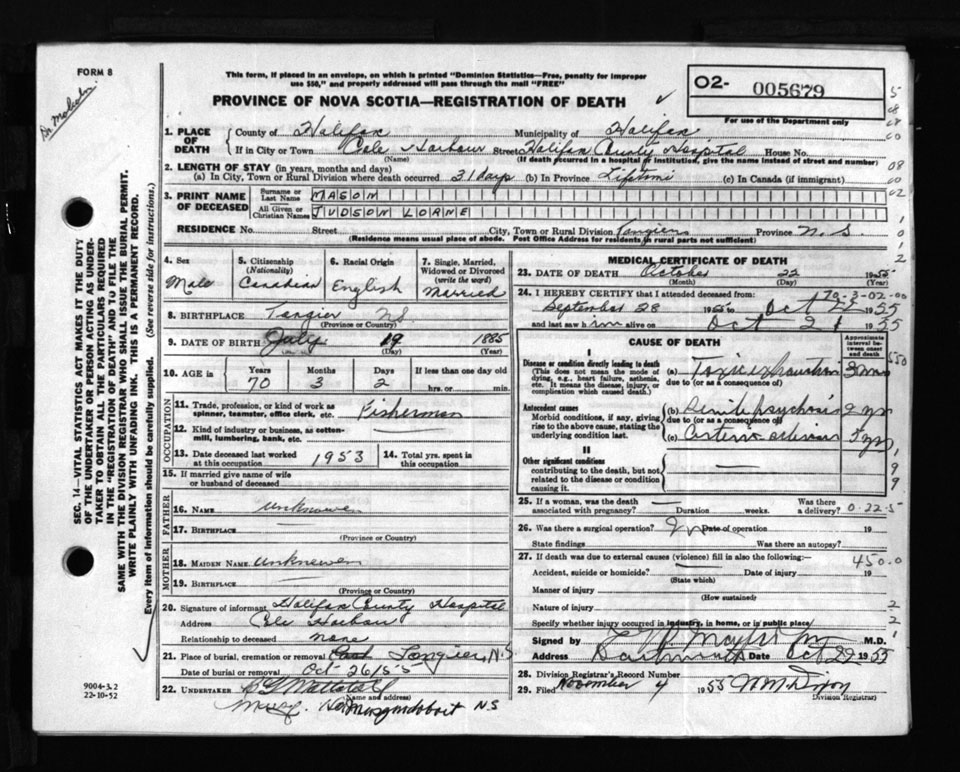 FORM 8
Dr Malcolm
This form, if placed in an envelope, on which is printed "Dominion Statistics—Free, penalty for improper
use $50," and properly addressed will pass through the mail "FREE"
PROVINCE OF NOVA SCOTIA—REGISTRATION OF DEATH
02- 005679
For use of the Department only
1. PLACE OF DEATH County of Halifax Municipality of Halifax
If in City or Town Cole Harbour Street Halifax County Hospital House No.
(Name) (If death occurred in a hospital or institution, give the name instead of street and number)
2. LENGTH OF STAY (in years, months and days)
(a) In City, Town or Rural Division where death occurred 31 days (b) In Province Lifetime (c) In Canada (if immigrant)
3. PRINT NAME OF DECEASED Surname or Last Name MASON
All Given or Christian Names JUDSON LORNE
RESIDENCE No. Street City, Town or Rural Division Tangier Province N.S.
(Residence means usual place of abode. Post Office Address for residents in rural parts not sufficient)
4. Sex Male
5. Citizenship (Nationality) Canadian
6. Racial Origin English
7. Single, Married, Widowed or Divorced (write the word) Married
8. BIRTHPLACE Tangier NS
(Province or Country)
9. DATE OF BIRTH July 19 1885
(Day) (Year)
10. AGE in Years 70 Months 3 Days 2 If less than one day old
hrs. or min.
OCCUPATION
11. Trade, profession, or kind of work as
spinner, teamster, office clerk, etc. Fisherman
12. Kind of industry or business, as cotten-
mill, lumbering, bank, etc.
13. Date deceased last worked at this occupation 1953 14. Total yrs. spent in this occupation
15. If married give name of wife
or husband of deceased
FATHER
16. Name unknowen
17. Birthplace —
(Province or Country)
MOTHER
18. Maiden Name unknowen
19. Birthplace —
(Province or Country)
20. Signature of informant Halifax County Hospital
Address Cole Harbour
Relationship to deceased none
21. Place of burial, cremation or removal Tangier, N.S
Date of burial or removal Oct 26/55
22. UNDERTAKER
(Name and address)
Musquodoboit N.S
MEDICAL CERTIFICATE OF DEATH
23. DATE OF DEATH October 22 1955
(Month) (Day)
24. I HEREBY CERTIFY that I attended deceased from:
September 28 1955 to Oct 22 1955
and last saw him alive on Oct 21 1955
CAUSE OF DEATH
Approximate interval between onset and death
I
Disease or condition directly leading to death
(This does not mean the mode of dying, e.g., heart failure, asthenia, etc. It means the disease, injury, or complication which caused death.)
(a) Toxic exhaustion 3 mos
due to (or as a consequence of)
Antecedent causes
Morbid conditions, if any, giving rise to the above cause, stating the underlying condition last.
(b) Senile psychosis 2 yrs
due to (or as a consequence of)
(c) 5 yrs
II
Other significant conditions
contributing to the death, but not related to the disease or condition causing it.
25. If a woman, was the death
associated with pregnancy? Duration weeks. Was there a delivery? 0-22-5
26. Was there a surgical operation? Date of operation 19
State findings Was there an autopsy?
27. If death was due to external causes (violence) fill in also the following:—
450.0
Accident, suicide or homicide? Date of injury 19
(State which)
Manner of injury
(How sustained)
Nature of injury
Specify whether injury occurred in industry, in home, or in public place
Signed by M.D.
Address Dartmouth Date Oct 29 1955
28. Division Registrar's Record Number
29. Filed November 4 1955
(Division Registrar)
SEC. 14—VITAL STATISTICS ACT MAKES IT THE DUTY
OF THE UNDERTAKER OR PERSON ACTING AS UNDER-
TAKER TO OBTAIN ALL THE PARTICULARS REQUIRED
IN THE "REGISTRATION OF DEATH" AND TO FILE THE
SAME WITH THE DIVISION REGISTRAR WHO SHALL ISSUE THE BURIAL PERMIT.
WRITE PLAINLY WITH UNFADING INK. THIS IS A PERMANENT RECORD.
Every item of information should be carefully supplied. (See reverse side for instructions.)
9004-3.2
22-10-52